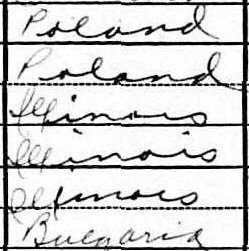 Poland
Poland
Illinois
Illinois
Illinois
Bulgaria